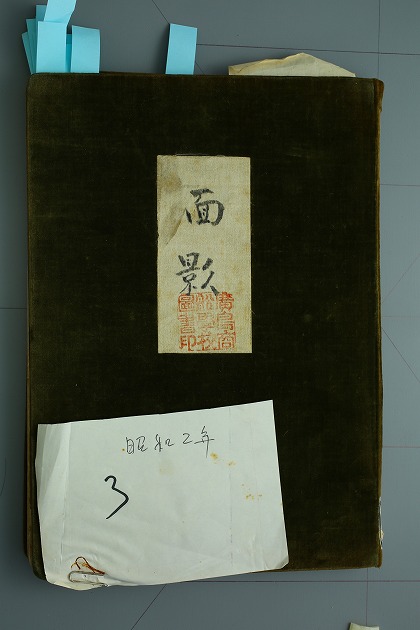 面影
廣島商
船學校
圖書印
昭和2年
3